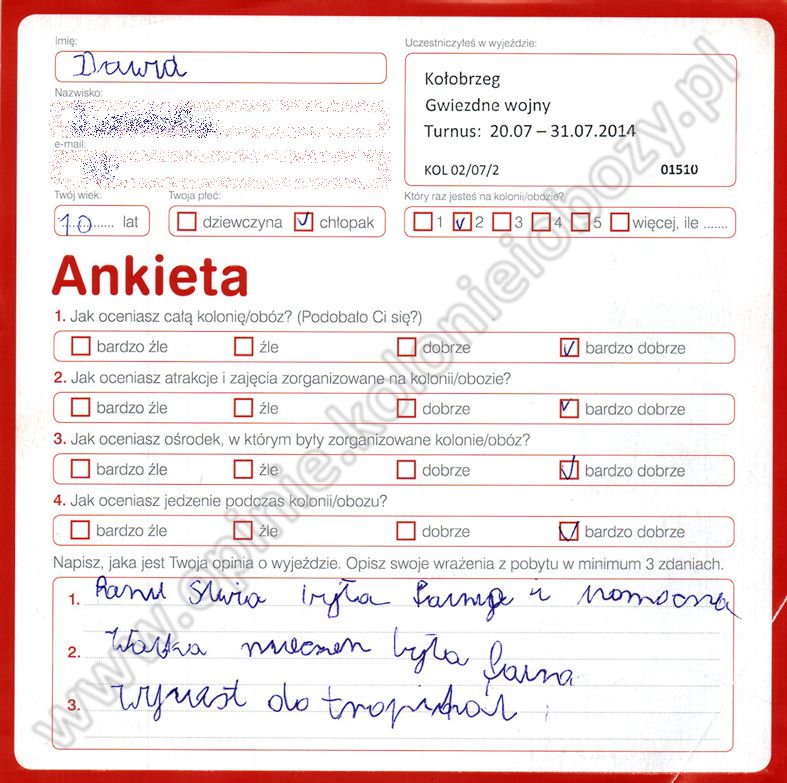 Imię:
Dawid
Uczestniczyłeś w wyjeździe:
Kołobrzeg
Gwiezdne wojny
Turnus: 20.07 – 31.07.2014
KOL 02/07/2 01510
Nazwisko:
e-mail:
Twój wiek:
10 lat
Twoja płeć:
dziewczyna chłopak
Który raz jesteś na kolonii/obozie?
1 2 3 4 5 więcej, ile .......
Ankieta
1. Jak oceniasz całą kolonię/obóz? (Podobało Ci się?)
bardzo źle źle dobrze bardzo dobrze
2. Jak oceniasz atrakcje i zajęcia zorganizowane na kolonii/obozie?
bardzo źle źle dobrze bardzo dobrze
3. Jak oceniasz ośrodek, w którym były zorganizowane kolonie/obóz?
bardzo źle źle dobrze bardzo dobrze
4. Jak oceniasz jedzenie podczas kolonii/obozu?
bardzo źle źle dobrze bardzo dobrze
Napisz, jaka jest Twoja opinia o wyjeździe. Opisz swoje wrażenia z pobytu w minimum 3 zdaniach.
1. była i pomocna
2. Walka mieczem była fajna
3. wyjazd do tropikal
www.opinie.kolonieiobozy.pl